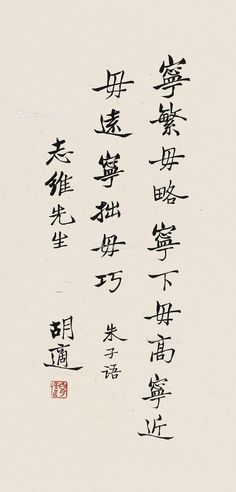 寧繁毋略寧下毋高寧近
毋遠寧拙毋巧
朱子语
志維先生
胡適